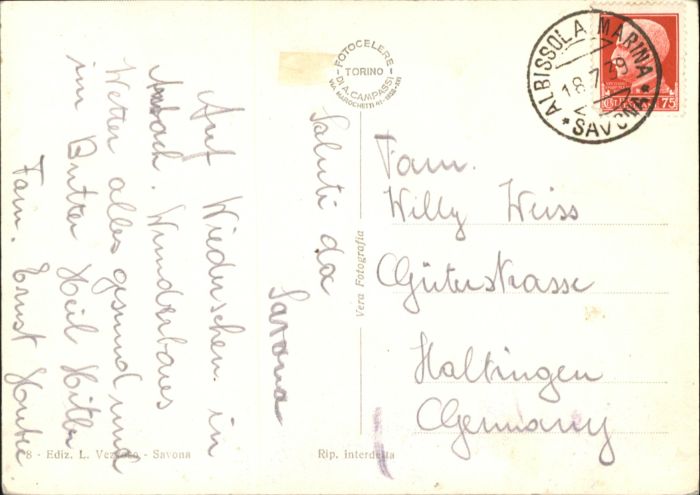 Auf Wiedersehen in
Wunderbares
Wetter alles gesund und
im Butter Heil Hitler
Fam. Ernst
Saluti da
Savona
Fam.
Willy Weiss
Güterstrasse
Haltingen
Germany
FOTOCELERE
TORINO
DI A. CAMPASSI
VIA MAROCHETTI 41
ALBISSOLA MARINA
18 7 38
* SAVONA *
75
Vera Fotografia
8 - Ediz. L. - Savona
Rip. interdetta